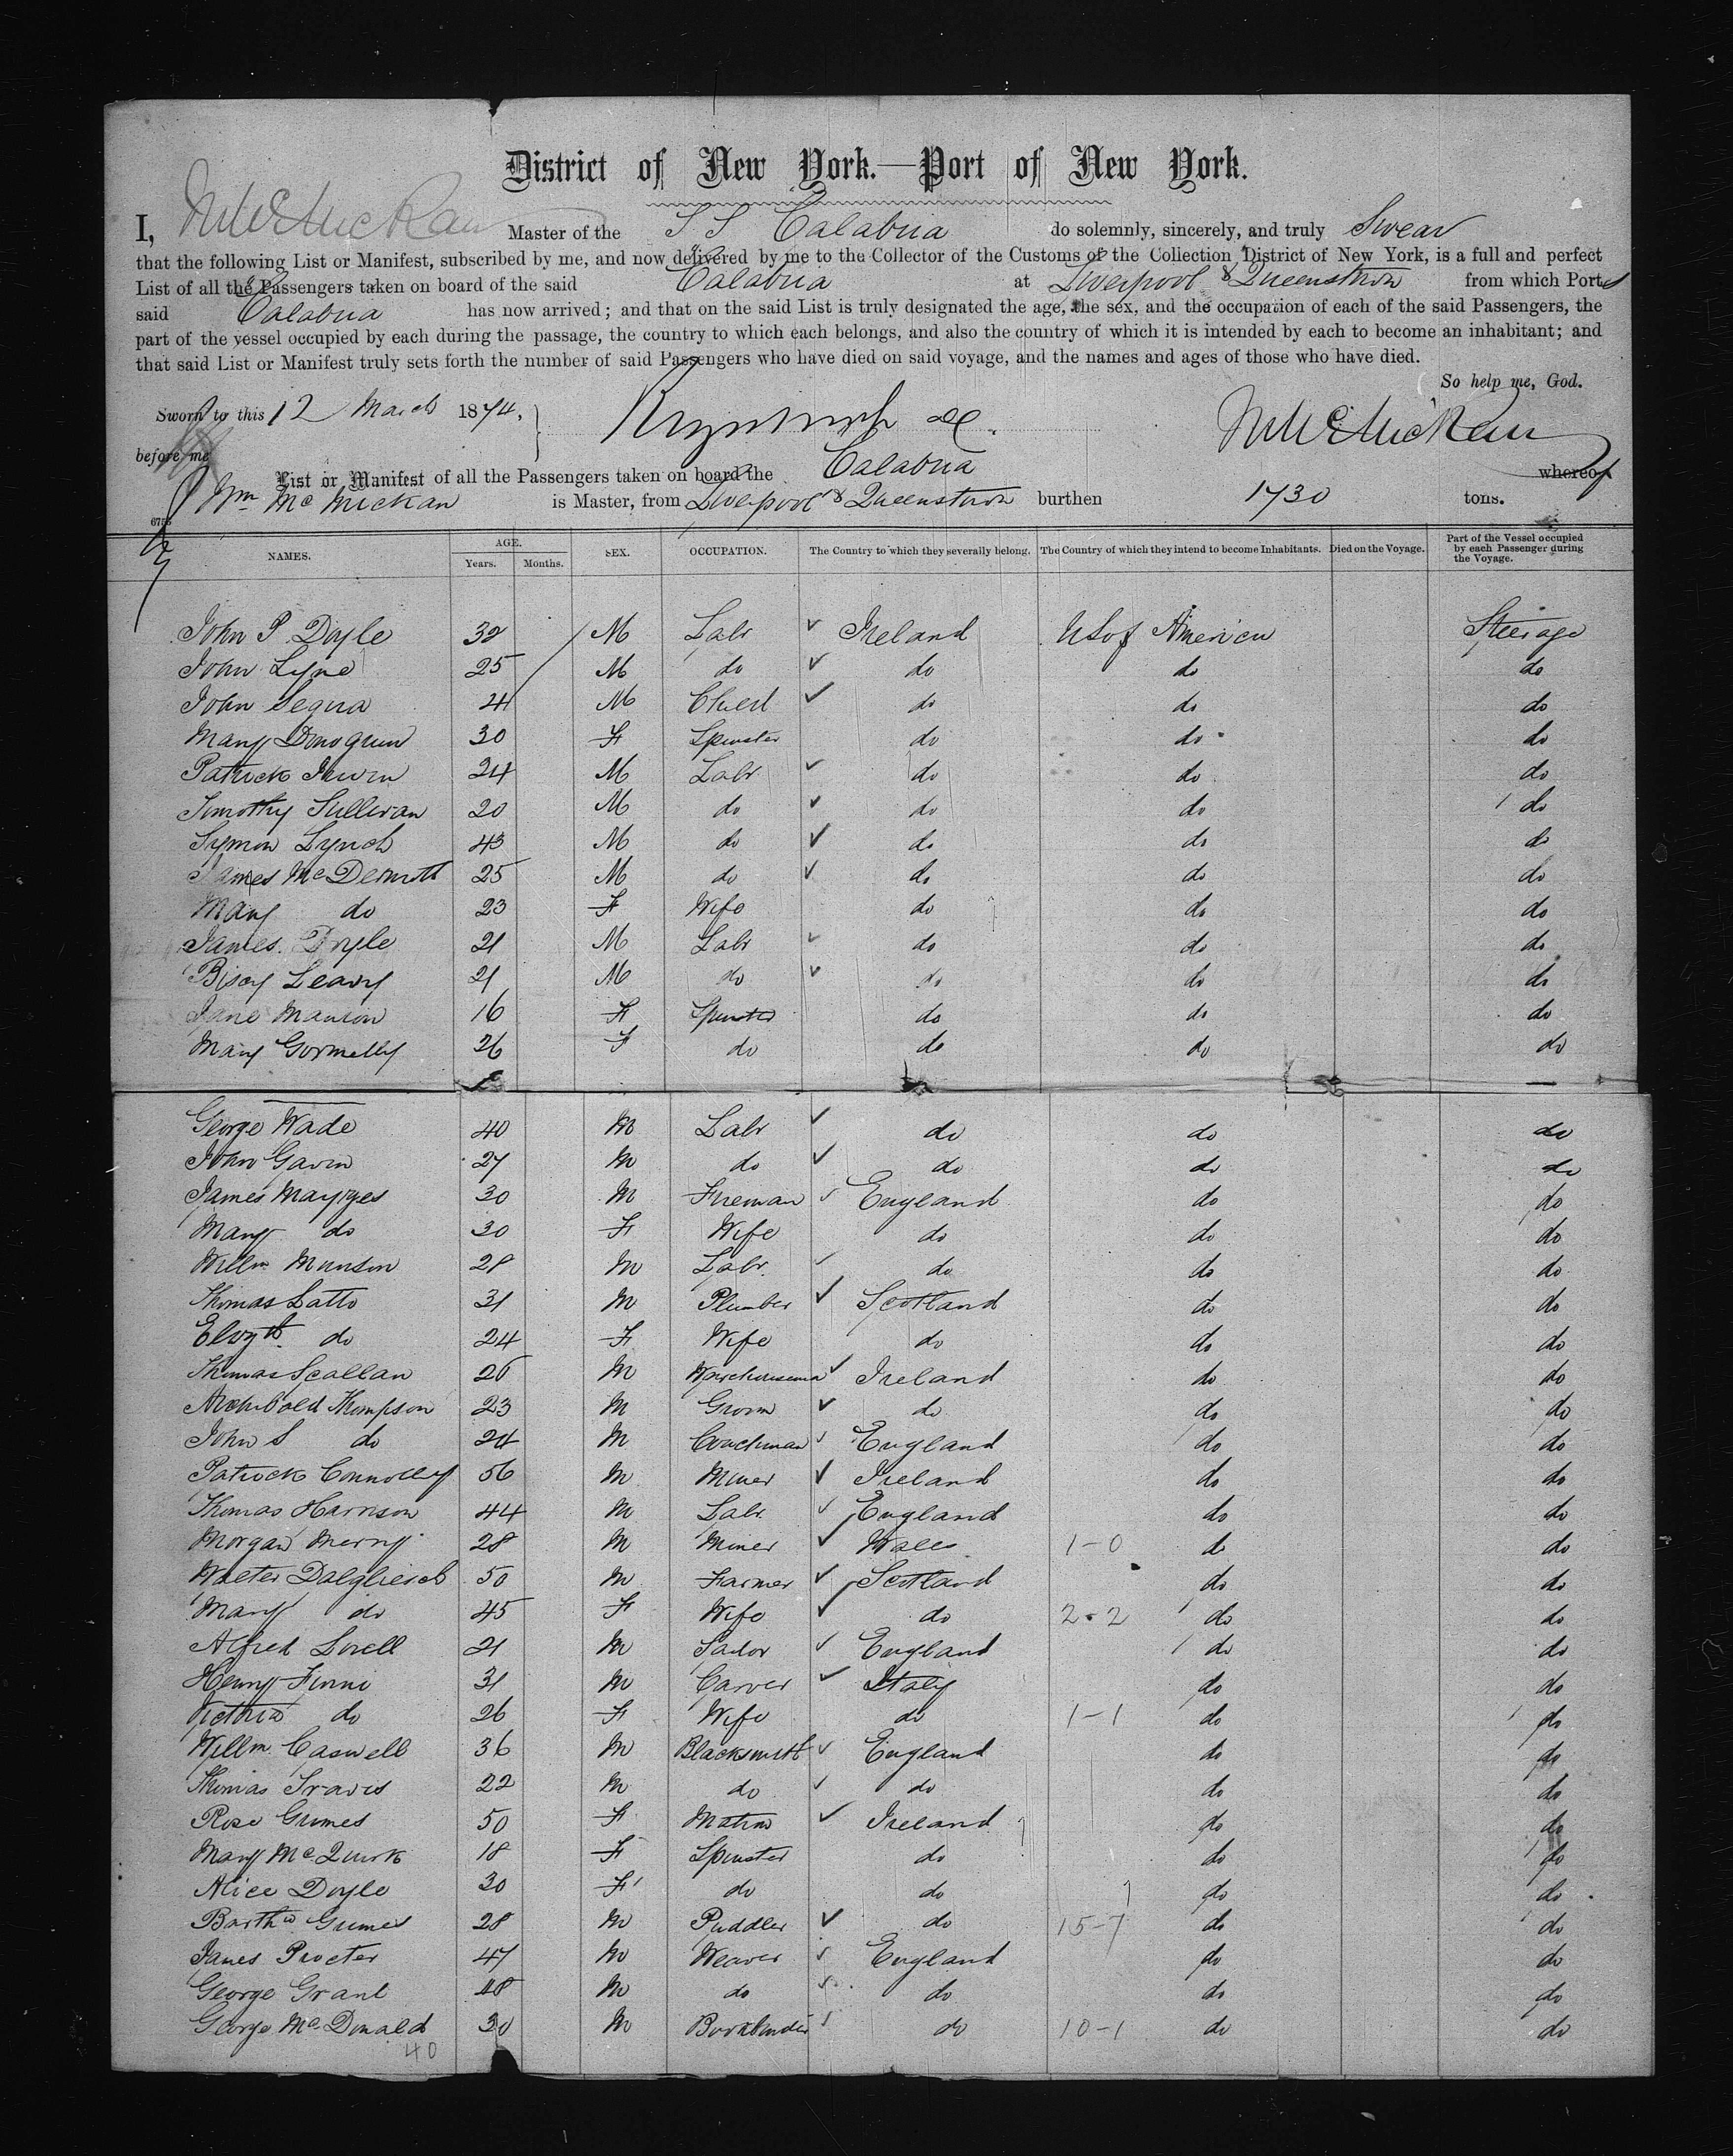 District of New York.—Port of New York.
I, Master of the S S Calabria do solemnly, sincerely, and truly Swear
that the following List or Manifest, subscribed by me, and now delivered by me to the Collector of the Customs of the Collection District of New York, is a full and perfect
List of all the Passengers taken on board of the said Calabria at Liverpool & Queenstown from which Ports
said Calabria has now arrived; and that on the said List is truly designated the age, the sex, and the occupation of each of the said Passengers, the
part of the vessel occupied by each during the passage, the country to which each belongs, and also the country of which it is intended by each to become an inhabitant; and
that said List or Manifest truly sets forth the number of said Passengers who have died on said voyage, and the names and ages of those who have died.
So help me, God.
Sworn to this 12 March 1874,
before me
List or Manifest of all the Passengers taken on board the Calabria whereof
Wm McMickan is Master, from Liverpool & Queenstown burthen 1730 tons.
NAMES. AGE. Years. Months. SEX. OCCUPATION. The Country to which they severally belong. The Country of which they intend to become Inhabitants. Died on the Voyage. Part of the Vessel occupied by each Passenger during the Voyage.
John P Doyle 32 M Labr Ireland US of America Steerage
John Lyne 25 M do do do do
John 41 M do do do
Mary 30 F Spinster do do do
Patrick Irwin 24 M Labr do do do
Timothy Sullivan 20 M do do do do
Symon Lynch 43 M do do do do
James McDermott 25 M do do do do
Mary do 23 F Wife do do do
James Doyle 21 M Labr do do do
Leavy 21 M do do do do
Jane 16 F Spinster do do do
Mary Gormelly 26 F do do do do
George Wade 40 M Labr do do do
John Gavin 27 M do do do do
James 30 M Fireman England do do
Mary do 30 F Wife do do do
Willm 28 M Labr. do do do
Thomas Latto 31 M Plumber Scotland do do
do 24 F Wife do do do
Thomas Scallan 26 M Warehouseman Ireland do do
Archibald Thompson 23 M Groom do do do
John S do 24 M Coachman England do do
Patrick Connolly 56 M Miner Ireland do do
Thomas Harrison 44 M Labr England do do
Morgan 28 M Miner Wales 1-0 do do
Walter Dalgliesch 50 M Farmer Scotland do do
Mary do 45 F Wife do 2-2 do do
Alfred Lovell 21 M England do do
Henry 31 M Carver Italy do do
Victoria do 26 F Wife do 1-1 do do
Willm Caswell 36 M Blacksmith England do do
Thomas Travis 22 M do do do do
Rose Grimes 50 F Matron Ireland do do
Mary McQuirk 18 F Spinster do do do
Alice Doyle 30 F do do do do
Barthw Grimes 28 M Puddler do 15-7 do do
James Procter 47 M Weaver England do do
George Grant 48 M do do do do
George McDonald 30 M Bookbinder do 10-1 do do
40